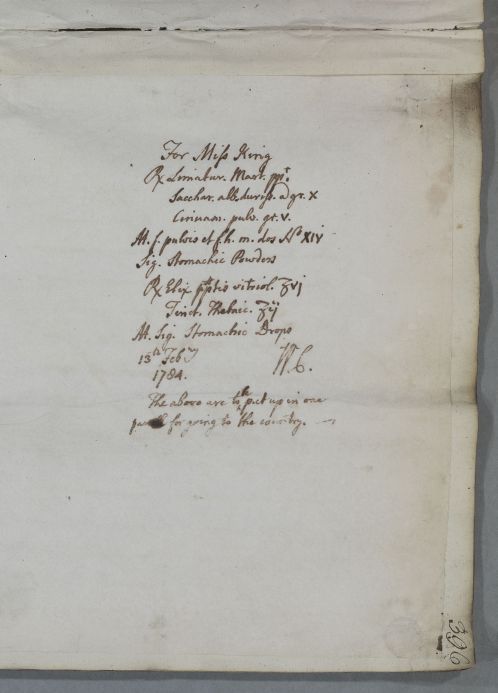 For Miss King
Rx Limatur. Mart. ppt.
Sacchar. alb. duriss. a gr. x
Cinnam. pulv. gr. v.
M. f. pulvis et f. h. m. dos No XIV
Sig. Stomachic Powders
Rx Elix ptis vitriol. ʒvj
Tinct. Thebaic. ʒij
M. Sig. Stomachic Drops
13th Febry
1784.
W.C.
The above are to be put up in one
for going to the country.
396